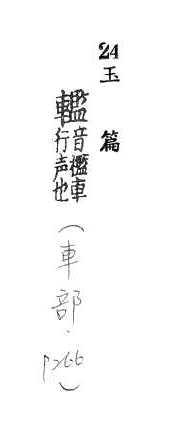 24 玉篇
轞音檻車行声也(車部.P266)